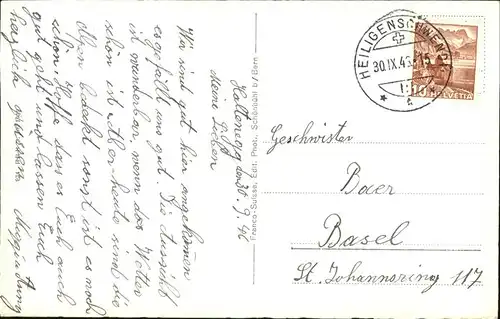 Haltenegg den 30.9.46
Meine Lieben
Wir sind gut hier angekommen
es gefällt uns gut. Die Aussicht
ist wunderbar, wenn das Wetter
schön ist. Aber heute sind die
bedeckt sonst ist es noch
schön. Hoffe dass es Euch auch
gut geht und lassen Euch
herzlich grüssen.
Franco-Suisse, Edit. Phot., Schönbühl b/Bern
HEILIGENSCHWENDI
30.IX.46-15
HELVETIA
Geschwister
Baer
Basel
St. Johannsring 117